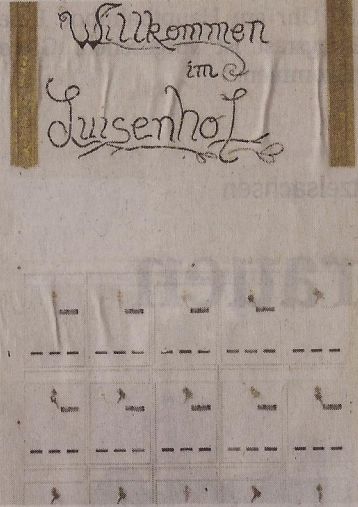 Willkommen
im
Luisenhof